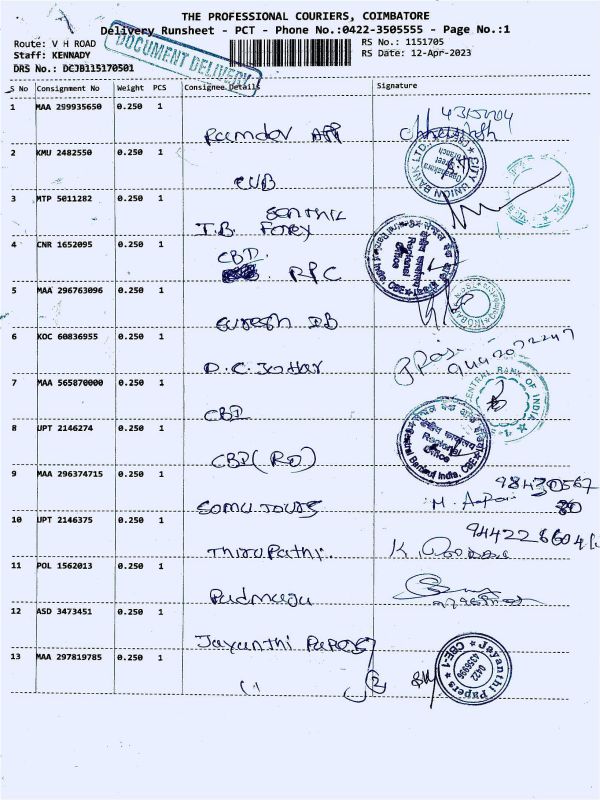 THE PROFESSIONAL COURIERS, COIMBATORE
Delivery Runsheet - PCT - Phone No.:0422-3505555 - Page No.:1
Route: V H ROAD
RS No.: 1151705
Staff: KENNADY
RS Date: 12-Apr-2023
DRS No.: DCJB115170501
DOCUMENT DELIVERY
S No Consignment No Weight PCS Consignee Details Signature
1 MAA 299935650 0.250 1
Ramdev APP
2 KMU 2482550 0.250 1
CUB
CITY UNION BANK LTD.
3 MTP 5011282 0.250 1
Senthil
I.B. Forex
4 CNR 1652095 0.250 1
CBI.
RPC
Regional Office
5 MAA 296763096 0.250 1
Suresh IB
6 KOC 60836955 0.250 1
D.C. Kothar
7 MAA 565870000 0.250 1
CBI
CENTRAL BANK OF INDIA
8 UPT 2146274 0.250 1
CBI (RO)
क्षेत्रीय कार्यालय
Regional Office
Central Bank of India, CBE
9 MAA 296374715 0.250 1
Somu Tours
10 UPT 2146375 0.250 1
Thirupathi.
11 POL 1562013 0.250 1
Padmaja
12 ASD 3473451 0.250 1
Jayanthi Papers
13 MAA 297819785 0.250 1
Jayanthi Papers
0422
4356996
CBE-1